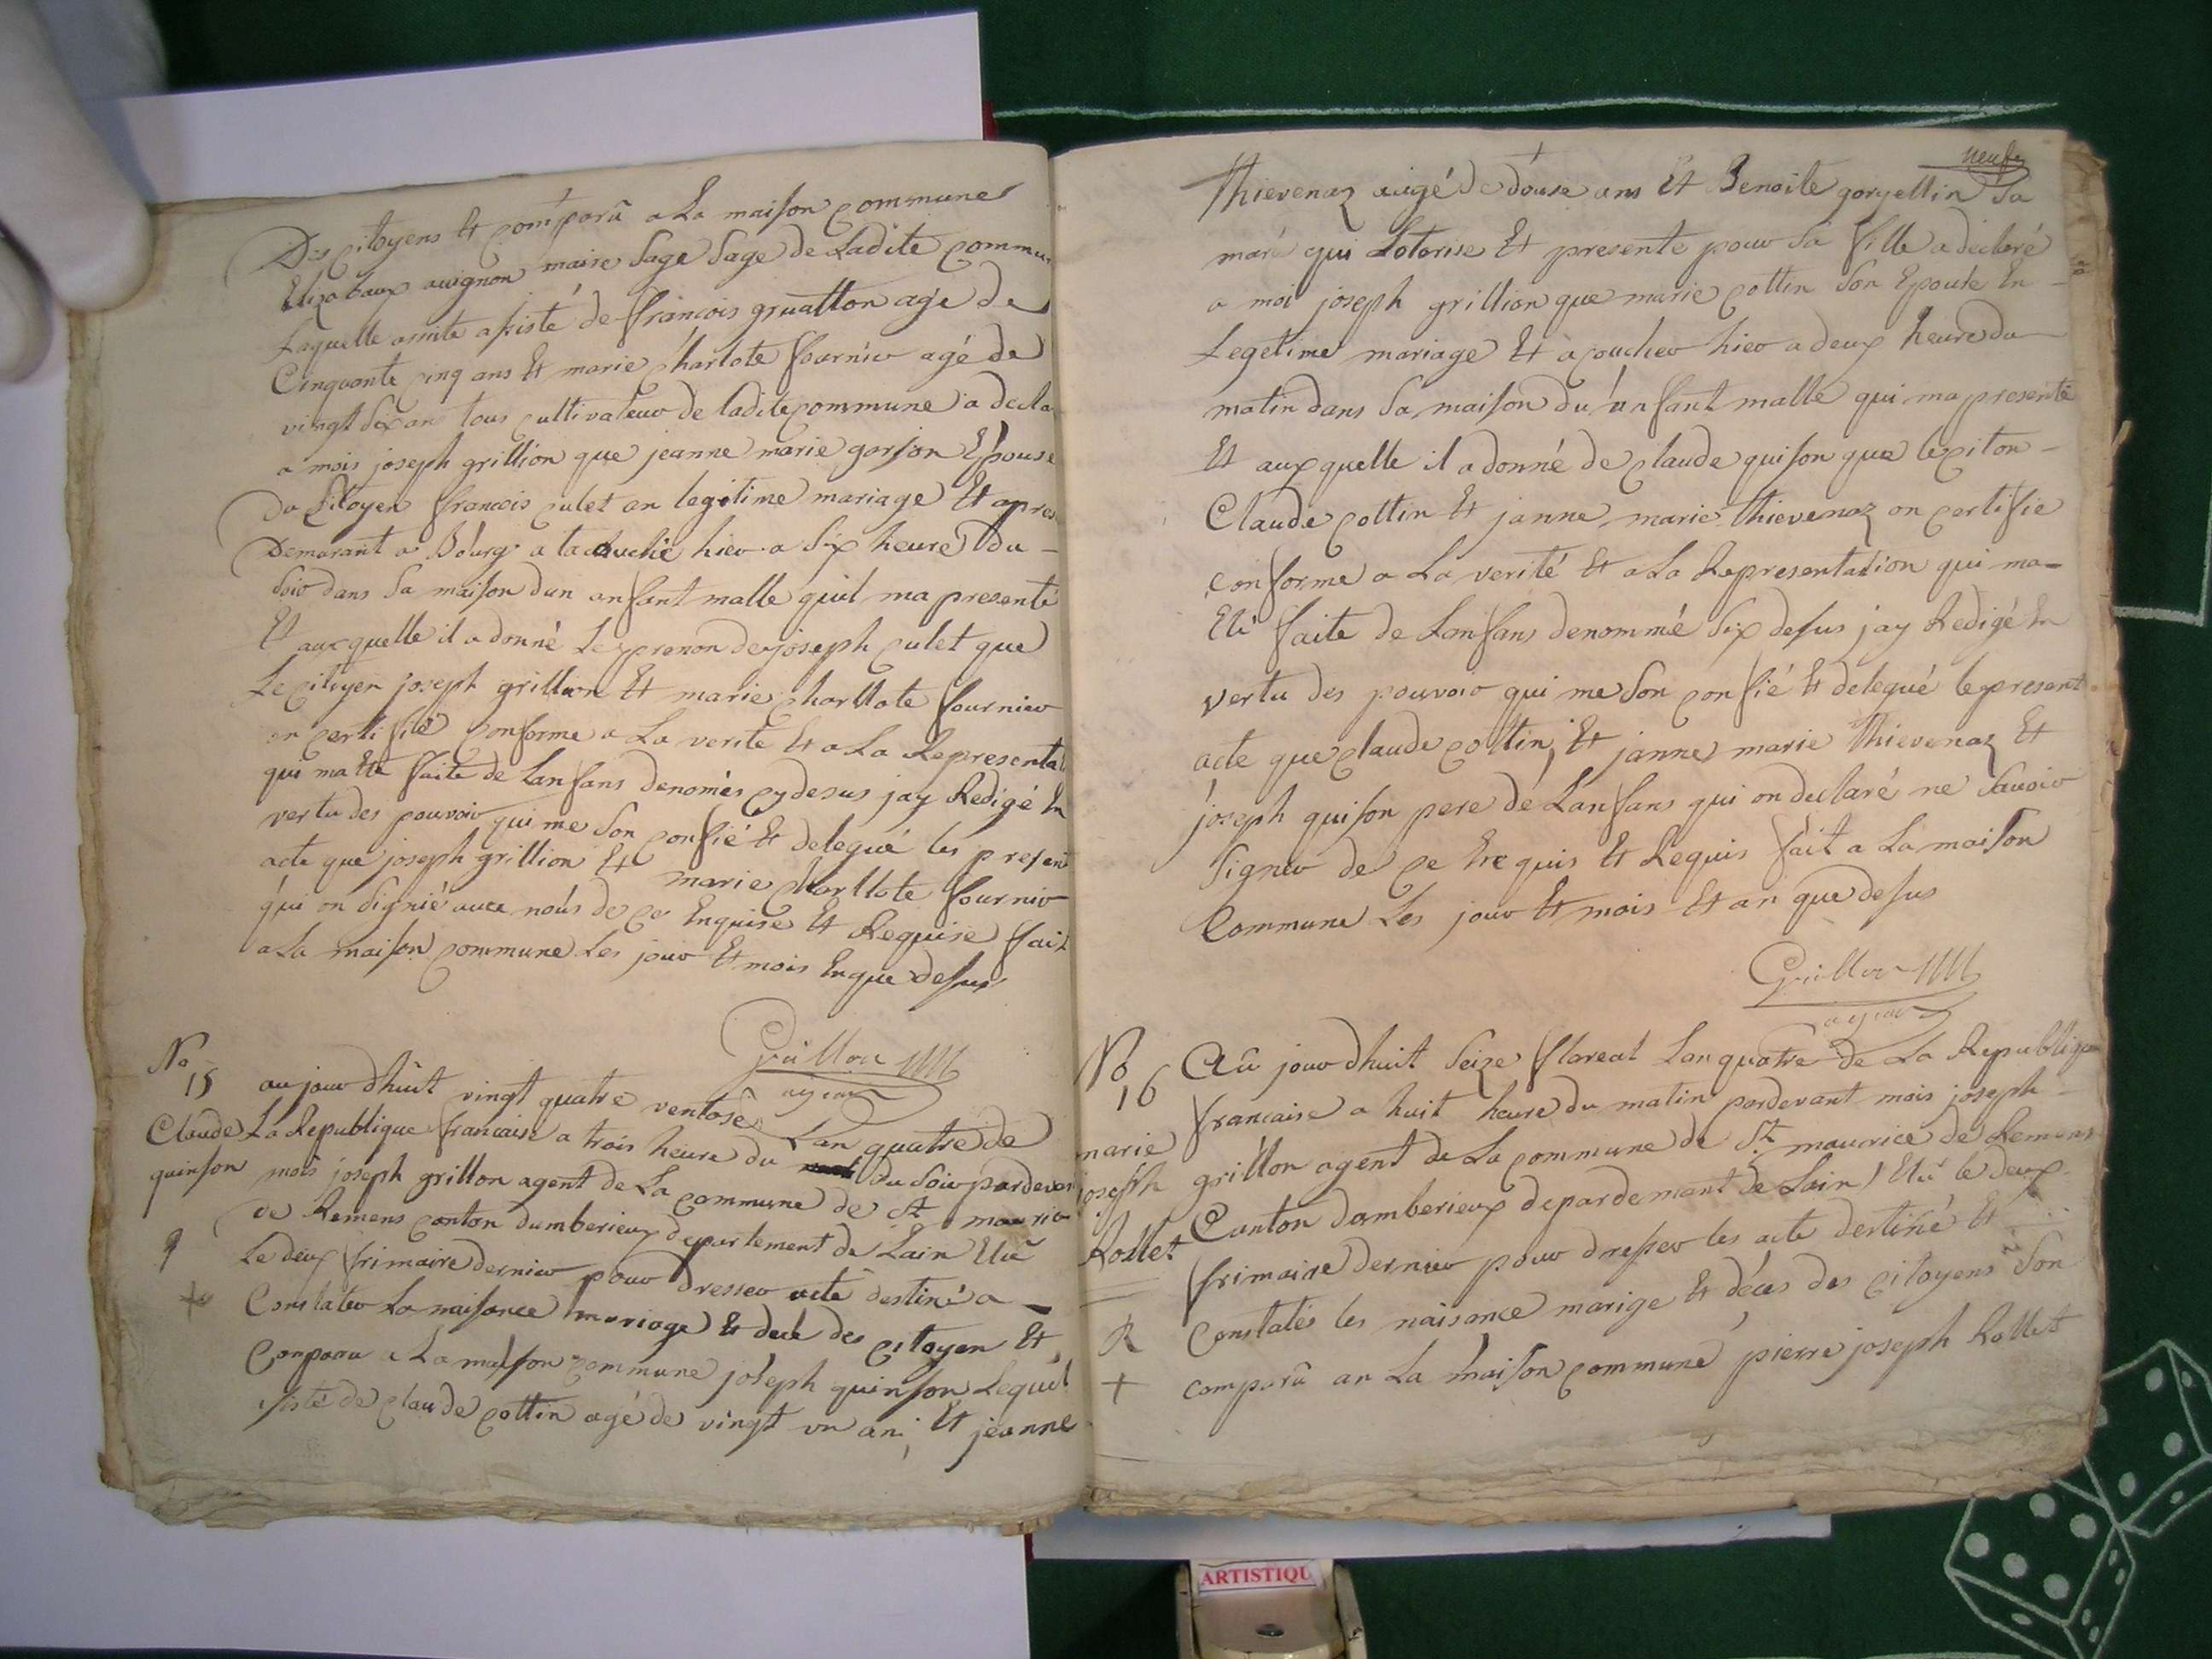 Des citoyens Et comparû a La maison commune
Elizabaux avignon maire Sage Sage de Ladite commu
Laquelle asisté de francois gruatton agé de
Cinquante cinq ans Et marie charlote fournier agé de
vingt Six ans tous cultivateur de ladite commune a decla
a mois joseph grillion que jeanne marie garson Epouse
Du Citoyen francois culet an legitime mariage Et apres
Demarant a Bourg a tacouché hier a Six heure du
Soir dans Sa maison dun anfant malle quil ma presenté
Et aux quelle il a donné Le prenon de joseph culet que
Le citoyen joseph grillion Et marie charllote fournier
on certifié conforme a La verité Et a La Representa
qui ma Eté faite de Lanfans denomés cydesus jay Redigé En
vertu des pouvoir qui me Son confié Et delegué les present
acte que joseph grillion Et marie charllote fournir
qui on Signié avec nous de ce Enquise Et Requise fait
a La maison commune Les jour Et mois En que desus
Grillion
agent
No
15 au jour dhuit vingt quatre ventose Lan quatre de
Claude La Republique francaise a trois heure du du Soir pardevan
quinson mois joseph grillon agent de La commune de St mauric
de Remens canton dumberieux departement de Lain Elû
Le deux frimaire dernier pour dresser acte destiné a
Constater La naisance mariage Et decé des citoyen Et
Comparu a La maison commune joseph quinson Lequel
sisté de claude cottin agé de vingt un an, Et jeanne
neuf
Thievenaz augé de douse ans Et Benoite goryettin Sa
mará qui Lotorise Et presente pour Sa fille a declaré
a moi joseph grillion que marie cottin Son Epouse En
Legetime mariage Et à coucher hier a deux heure du
matin dans Sa maison du anfant malle qui ma presenté
Et aux quelle il a donné de claude quison que le citon
Claude cottin Et janne marie Thievenaz on certifie
conforme a La verité Et a La Representation qui ma
Eté faite de Lanfans denommé Six desus jay Redigé En
vertu des pouvoir qui me Son confié Et delegué le present
acte que claude cottin, Et janne marie Thievenaz Et
joseph quison pere de Lanfans qui on declaré ne Savoir
Signer de ce Enquis Et Requis fait a La maison
Commune Les jour Et mois Et an que desus
Grillon
agent
No
16 Au jour dhuit Seize floreal Lan quatre de La Republique
francaise a huit heure du matin pardevant mois joseph
marie
joseph grillon agent de La commune de St maurice de Remens
Rollet Canton damberieux depardemant de Lain Elû le deux
frimaire dernier pour dresser les acte destiné Et
R Constatés les naisance marige Et déces des citoyens Son
+ comparû an La maison commune pierre joseph Rollet
ARTISTIQU